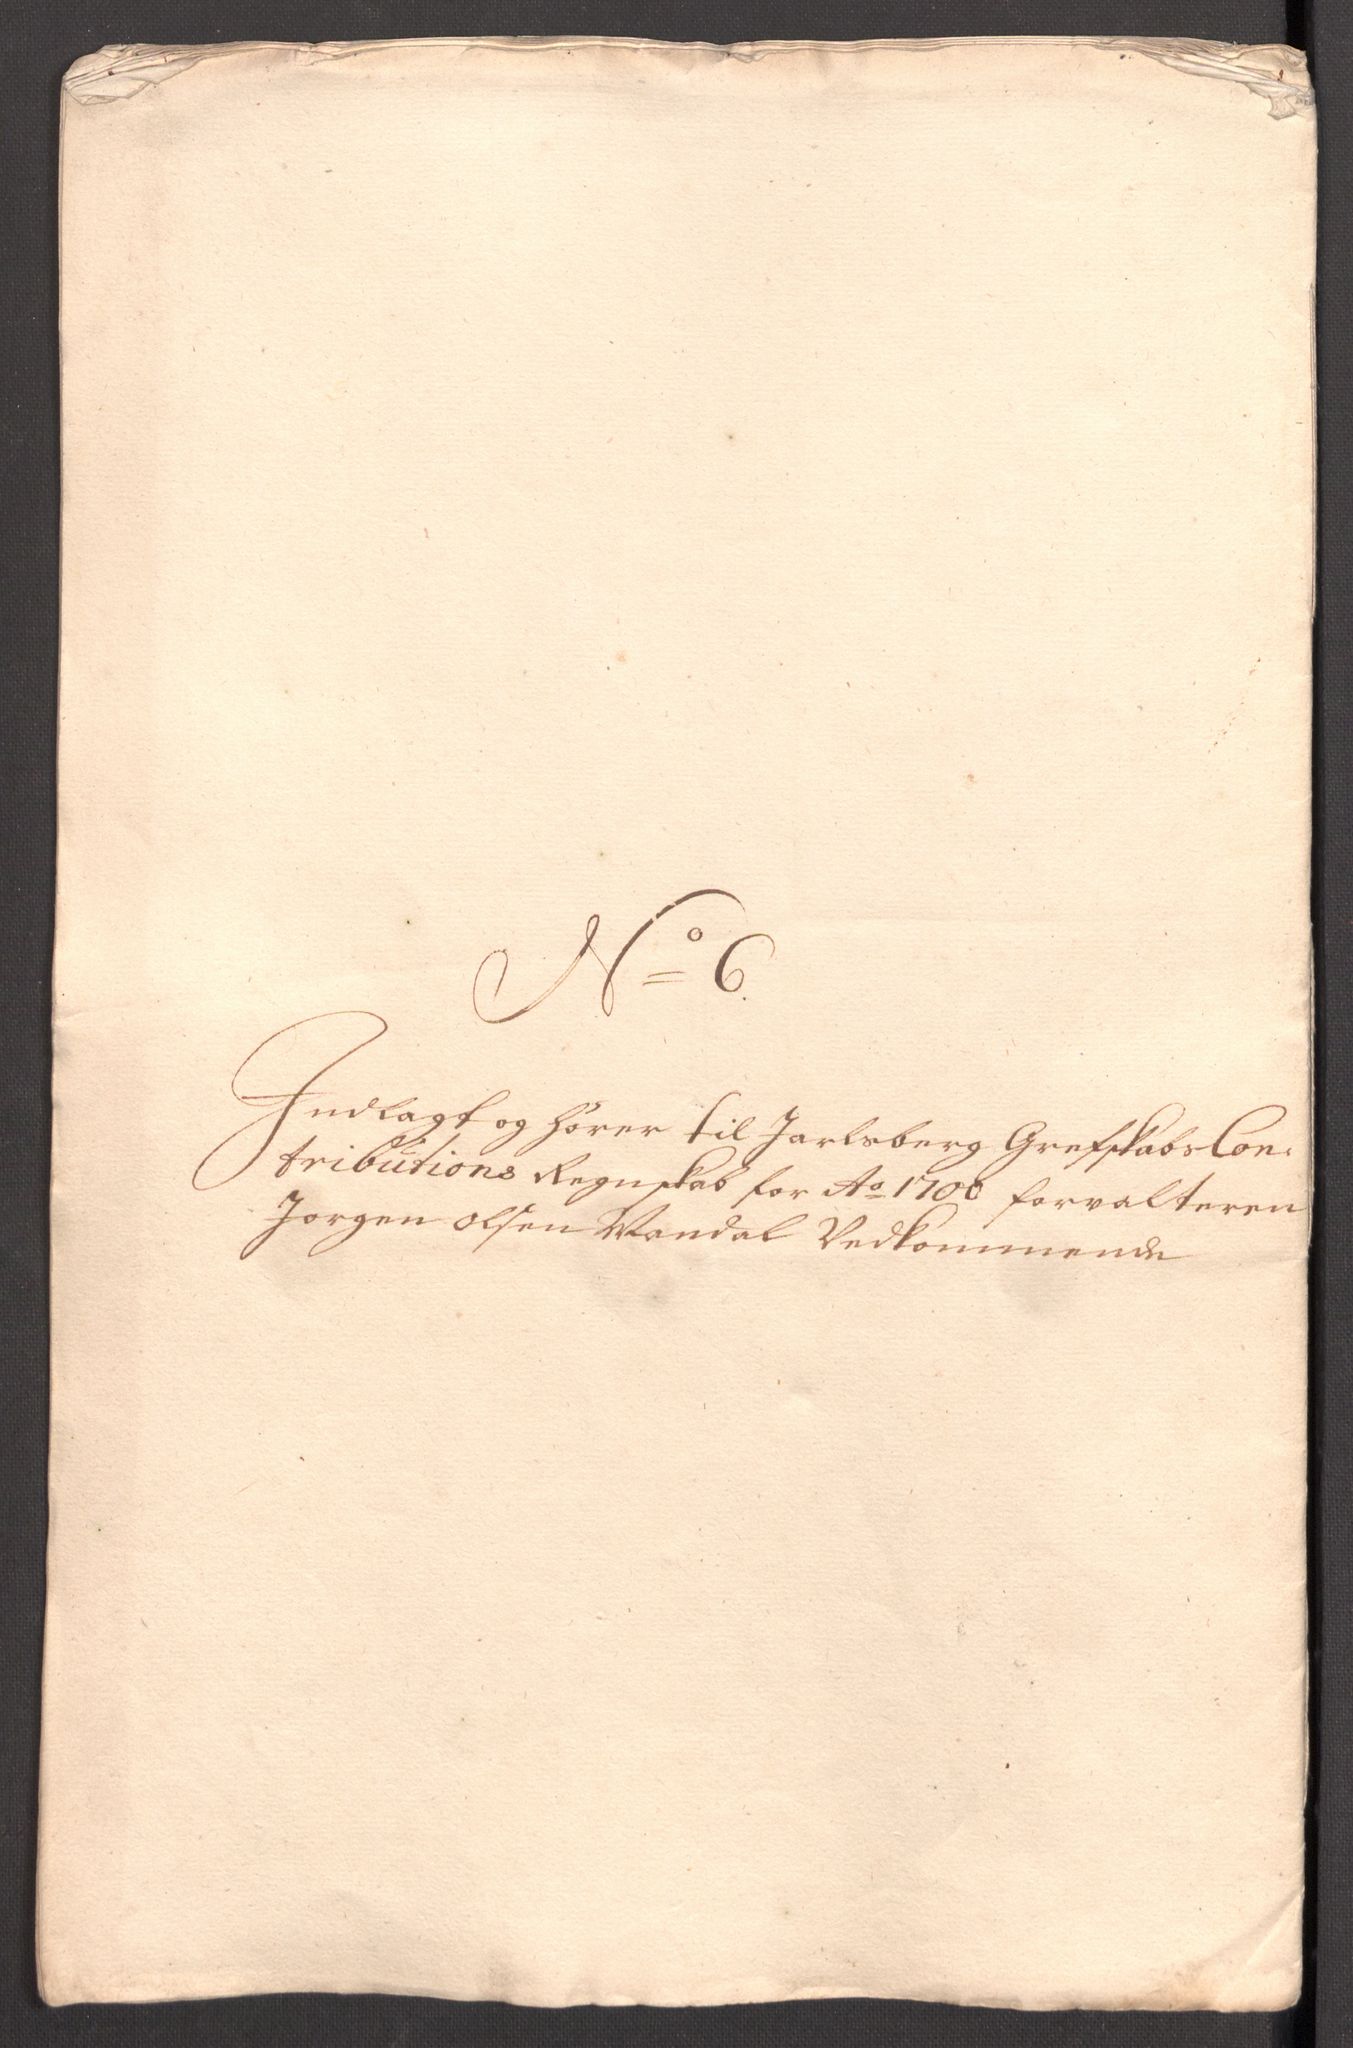 No 6.
Indlagt og hörer til Jarlsberg Grefskabs Con-
tributions Regnskab for Ao 1700 forvalteren
Jörgen Olsen Wandal Vedkommende